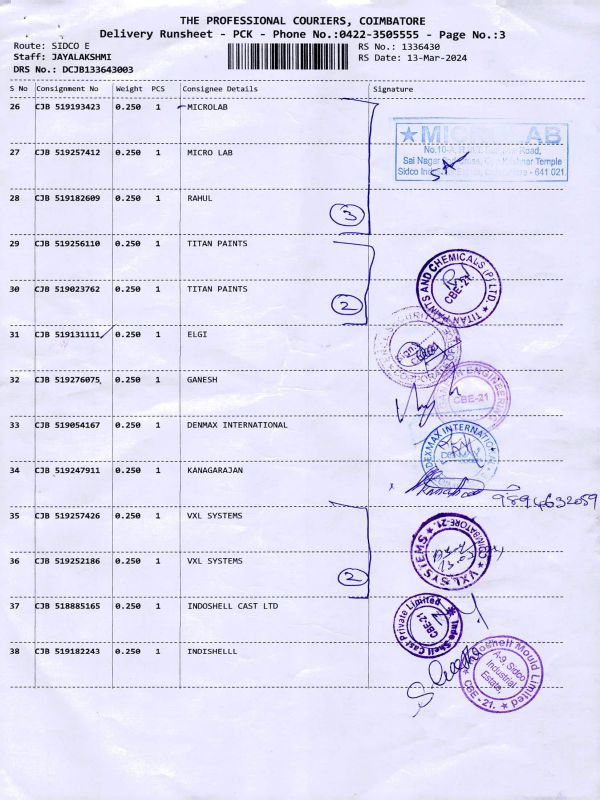 THE PROFESSIONAL COURIERS, COIMBATORE
Delivery Runsheet - PCK - Phone No.:0422-3505555 - Page No.:3
Route: SIDCO E
RS No.: 1336430
Staff: JAYALAKSHMI
RS Date: 13-Mar-2024
DRS No.: DCJB133643003
S No Consignment No Weight PCS Consignee Details Signature
26 CJB 519193423 0.250 1 MICROLAB
MICRO LAB
27 CJB 519257412 0.250 1 MICRO LAB
Sai Nagar
Temple
Sidco - 641 021
28 CJB 519182609 0.250 1 RAHUL
3
29 CJB 519256110 0.250 1 TITAN PAINTS
TITAN PAINTS AND CHEMICALS (P) LTD.
CBE-21.
30 CJB 519023762 0.250 1 TITAN PAINTS
2
31 CJB 519131111 0.250 1 ELGI
32 CJB 519276075 0.250 1 GANESH
ENGINEERING
CBE-21
33 CJB 519054167 0.250 1 DENMAX INTERNATIONAL
DEXMAX INTERNATIONAL
34 CJB 519247911 0.250 1 KANAGARAJAN
9894632059
35 CJB 519257426 0.250 1 VXL SYSTEMS
VXL SYSTEMS
COIMBATORE-21.
36 CJB 519252186 0.250 1 VXL SYSTEMS
2
37 CJB 518885165 0.250 1 INDOSHELL CAST LTD
Indo-Shell Cast Private Limited
CBE-21
38 CJB 519182243 0.250 1 INDISHELLL
Indoshell Mould Limited
A-9, Sidco
Industrial
Estate,
CBE - 21.